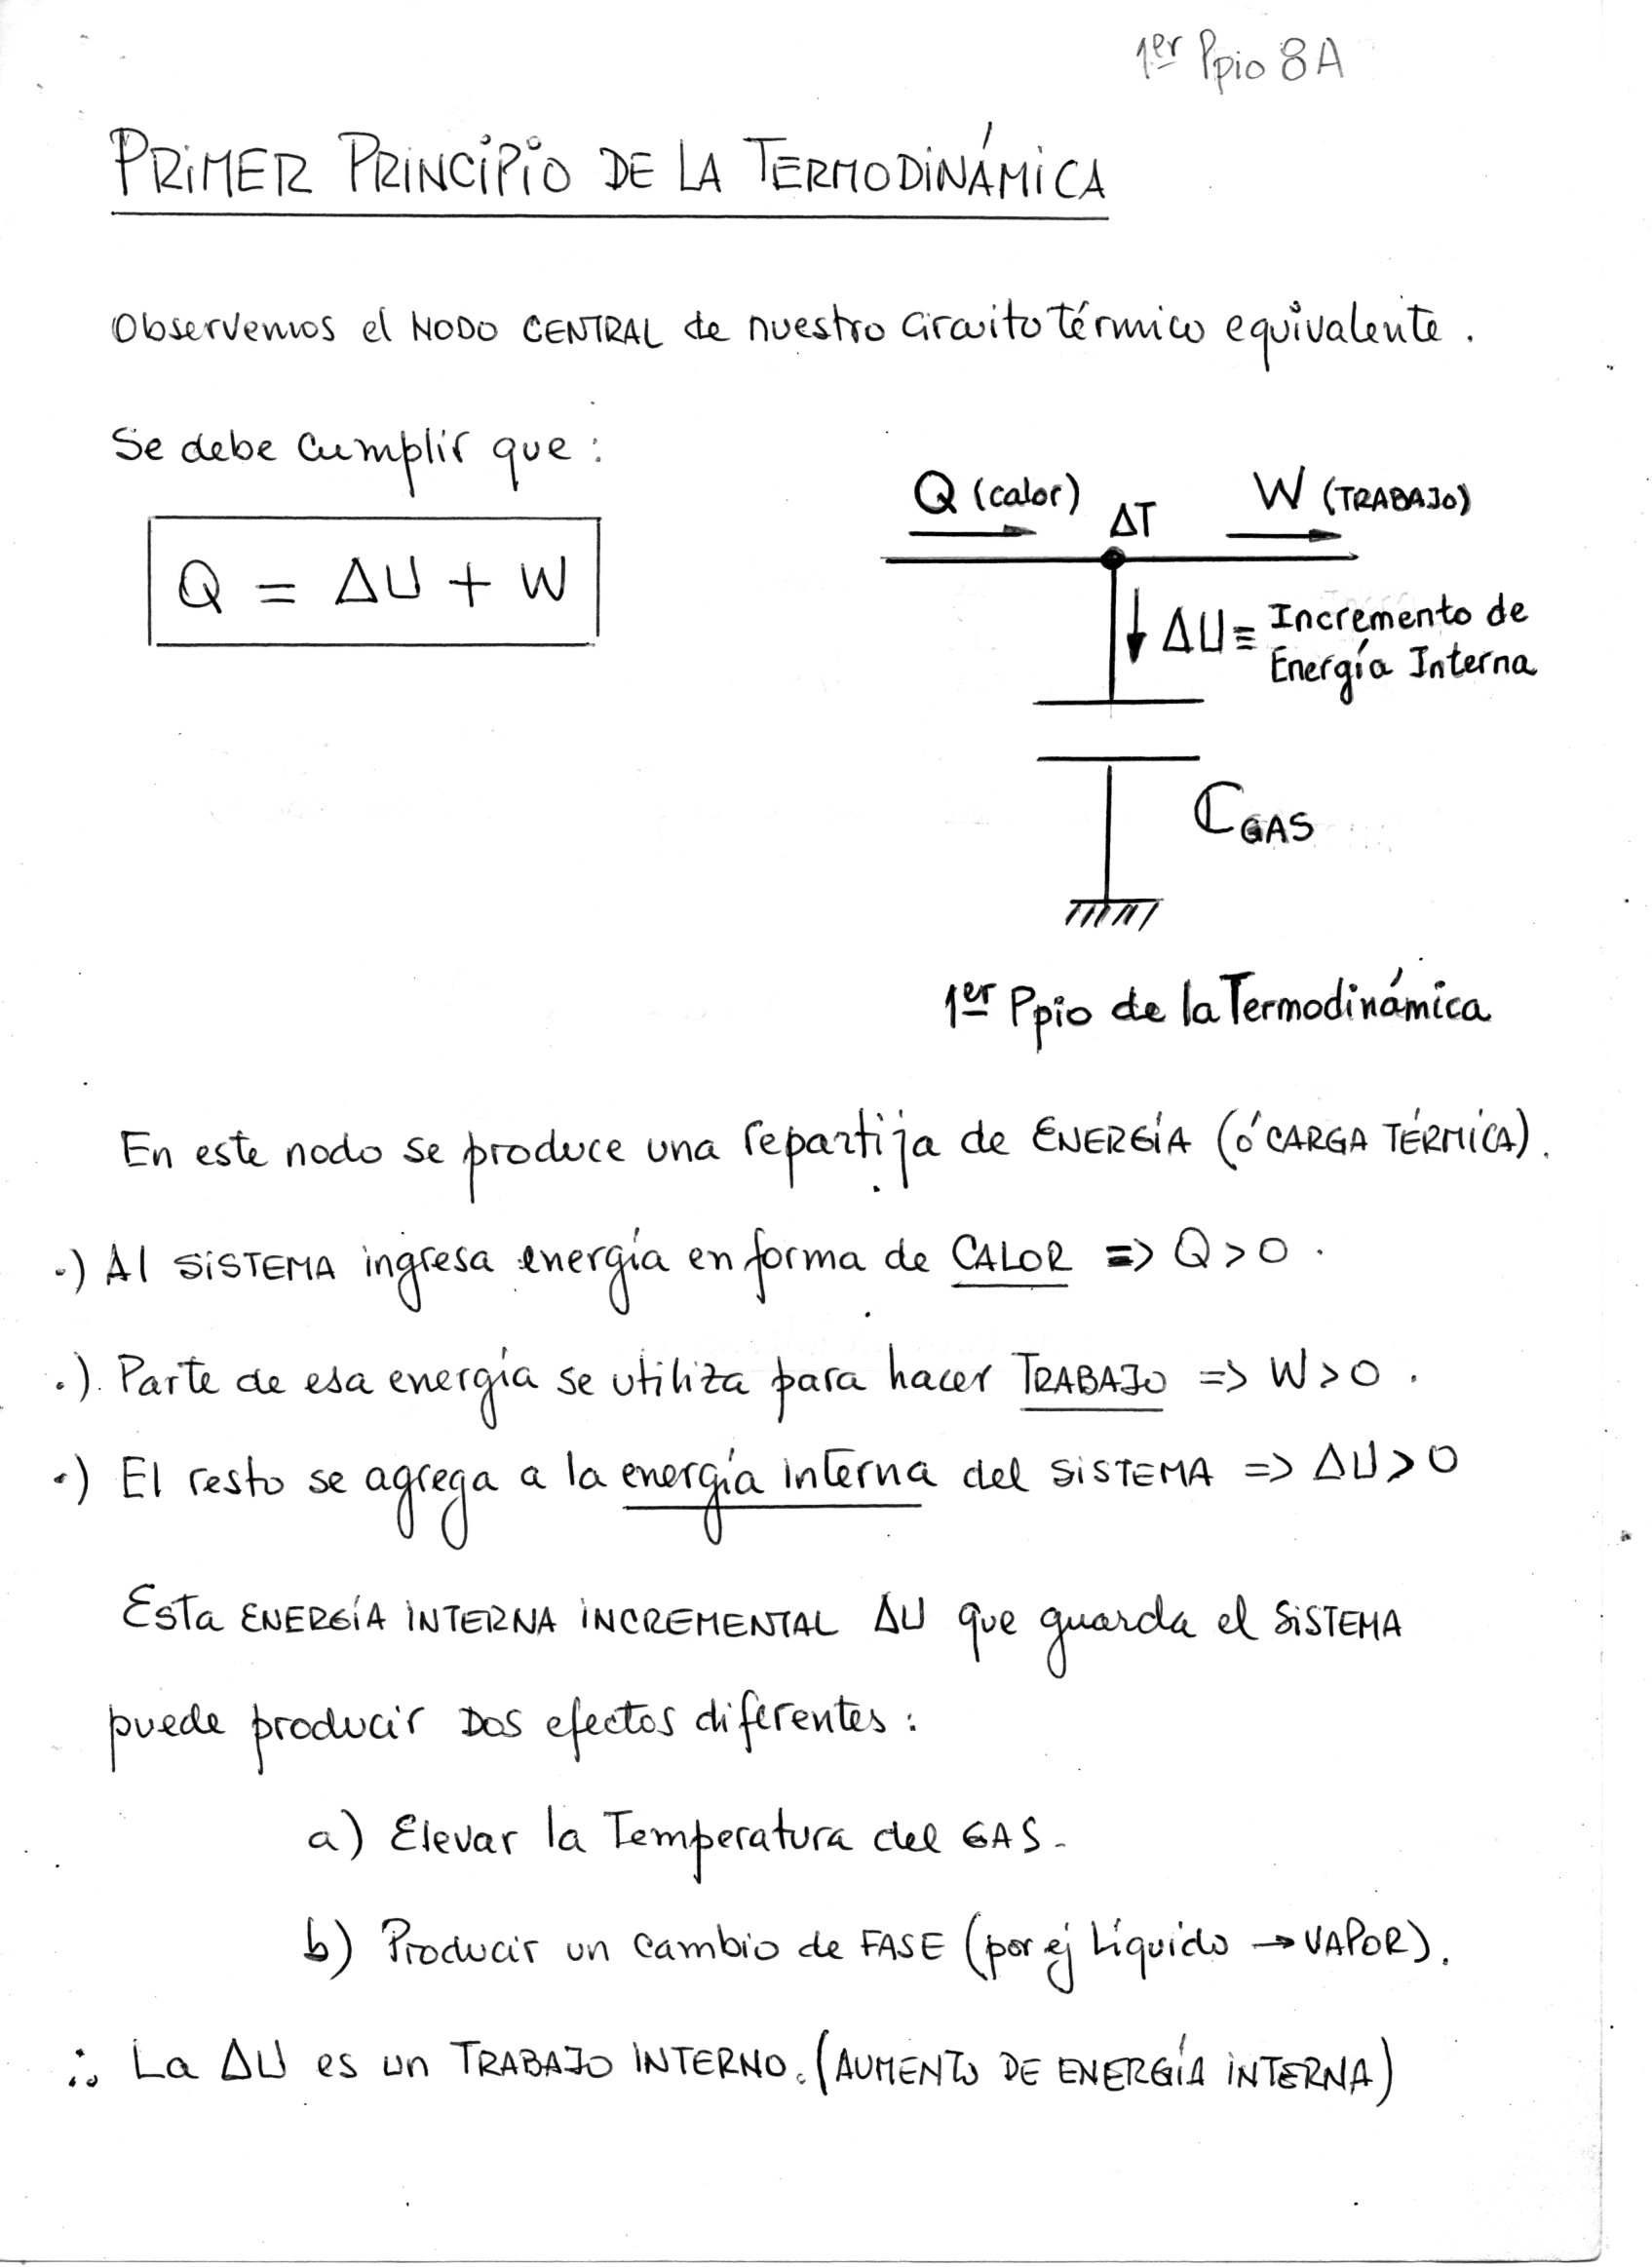 1er Ppio 8A
PRIMER PRINCIPIO DE LA TERMODINÁMICA
Observemos el NODO CENTRAL de nuestro circuito térmico equivalente.
Se debe cumplir que:
Q = ΔU + W
Q (calor)
ΔT
W (TRABAJO)
ΔU ≡ Incremento de
Energía Interna
CGAS
1er Ppio de la Termodinámica
En este nodo se produce una repartija de ENERGÍA (ó CARGA TÉRMICA).
.) Al SISTEMA ingresa energía en forma de CALOR => Q > 0.
.) Parte de esa energía se utiliza para hacer TRABAJO => W > 0.
.) El resto se agrega a la energía interna del SISTEMA => ΔU > 0
Esta ENERGÍA INTERNA INCREMENTAL ΔU que guarda el SISTEMA
puede producir DOS efectos diferentes:
a) Elevar la Temperatura del GAS.
b) Producir un cambio de FASE (por ej Líquido → VAPOR).
∴ La ΔU es un TRABAJO INTERNO. (AUMENTO DE ENERGÍA INTERNA)